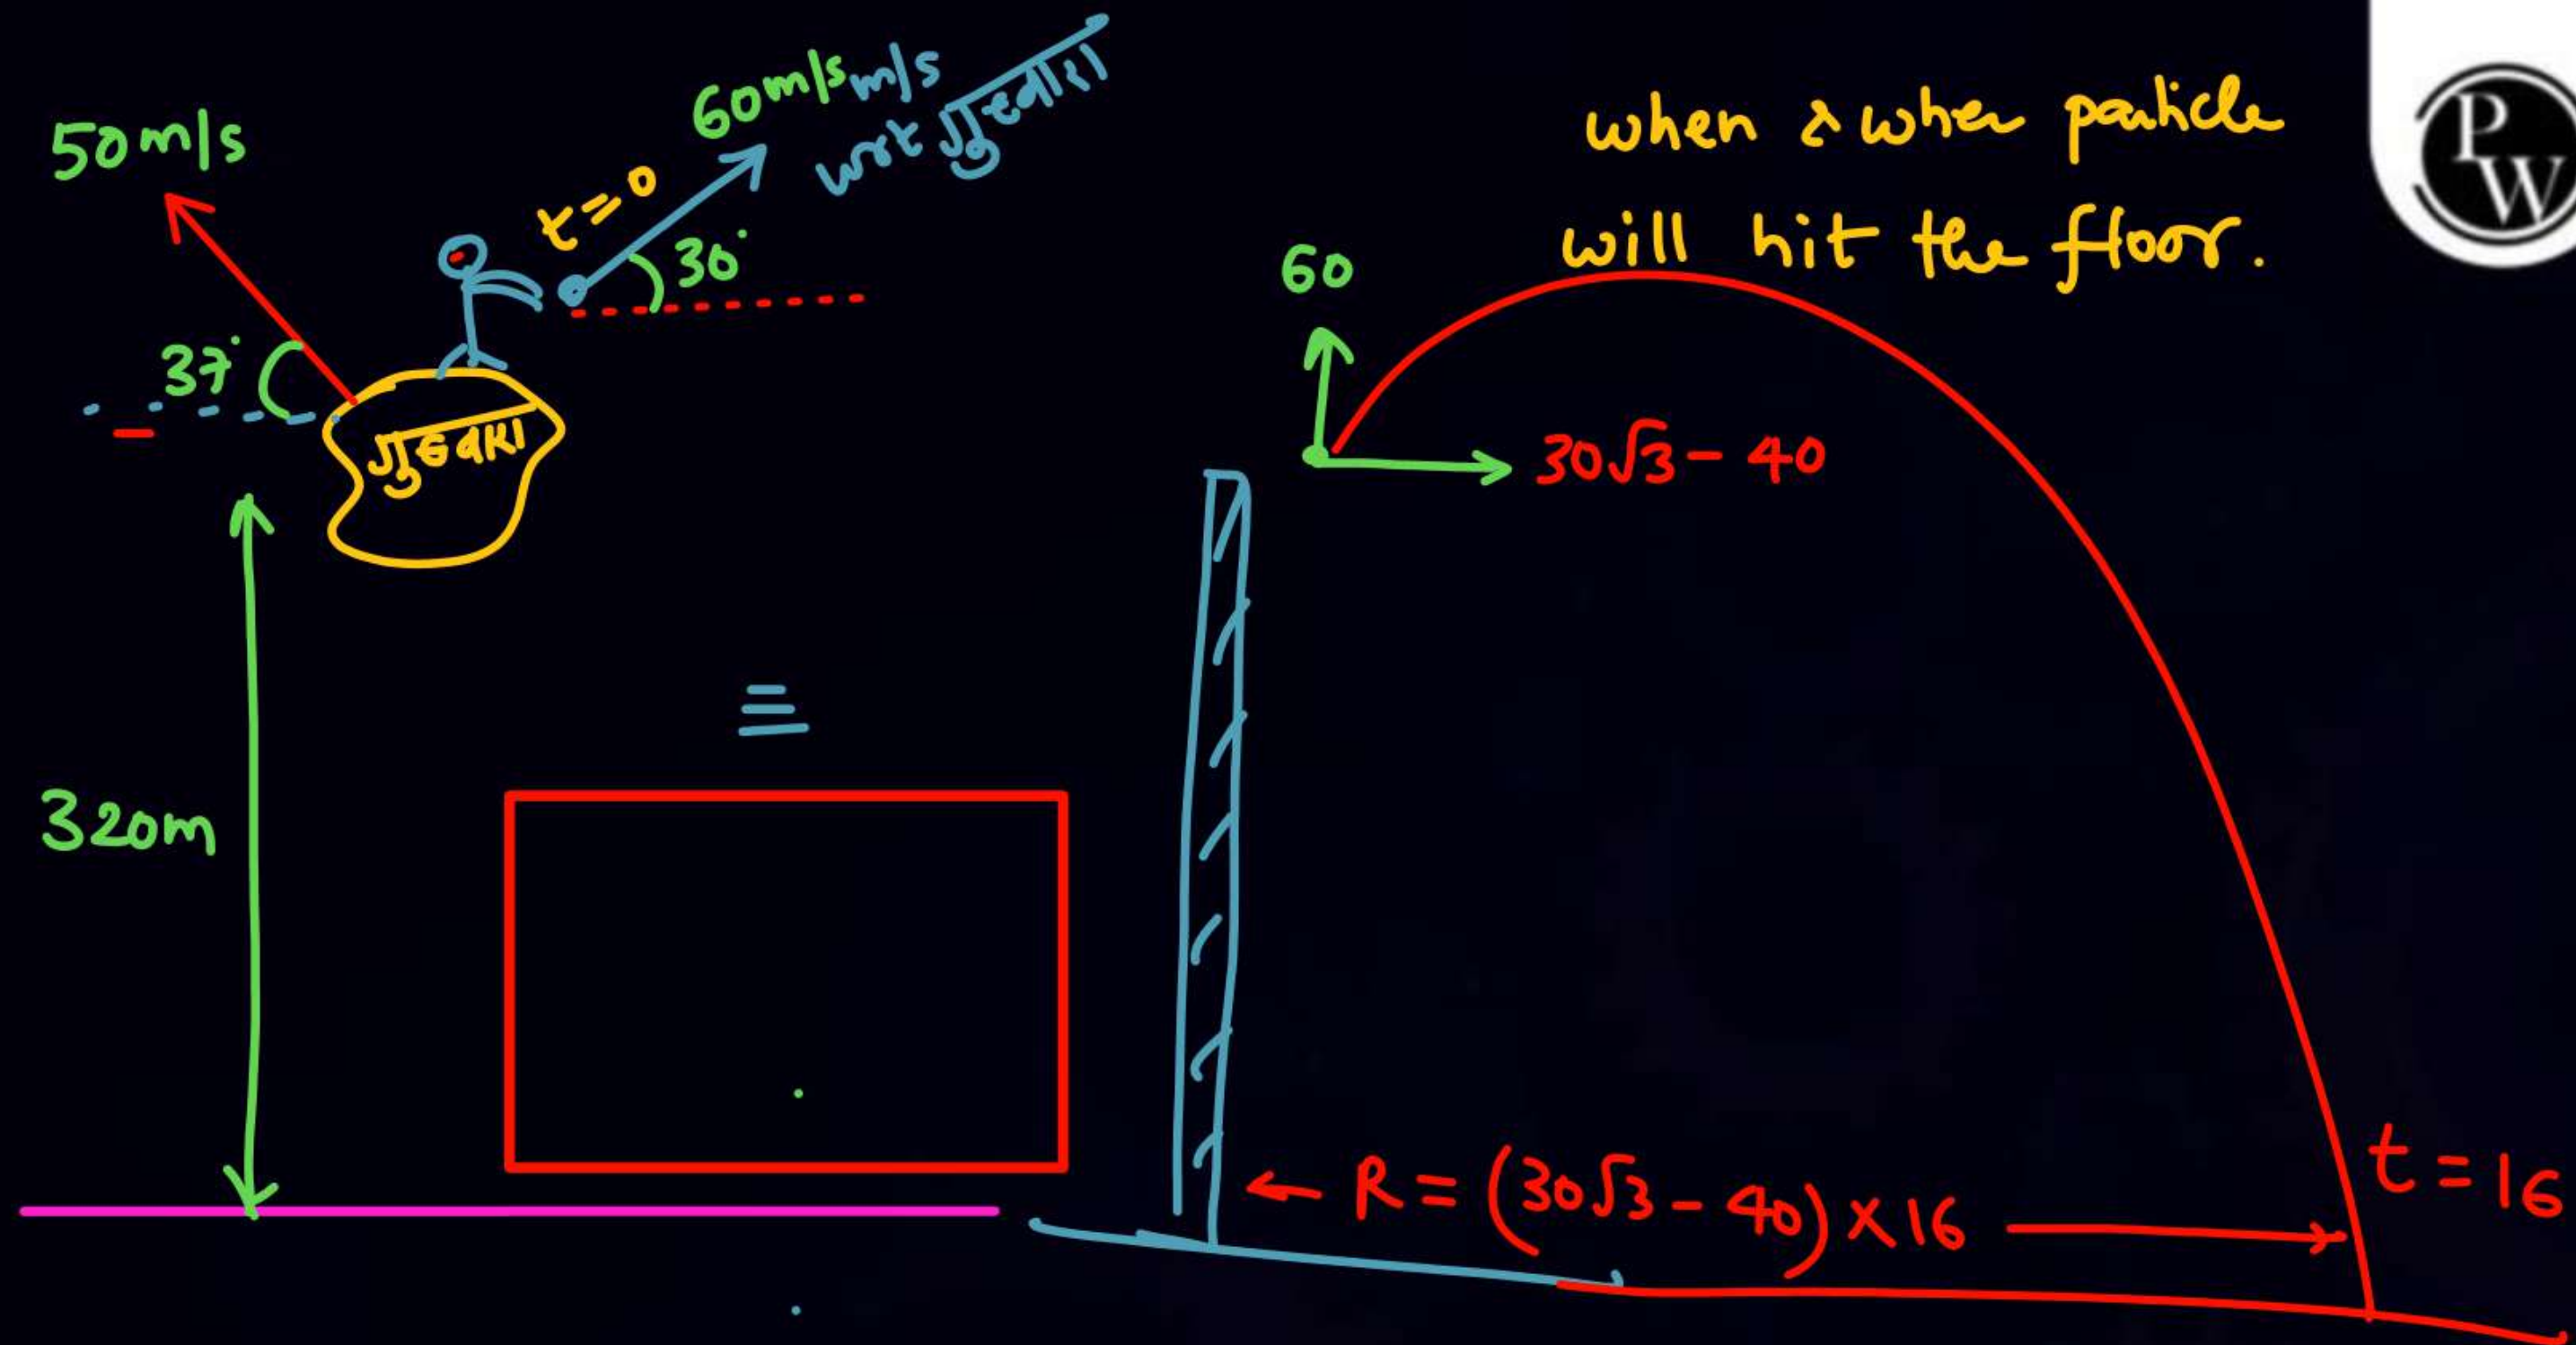 50m/s
60m/sm/s
wrt गुब्बारा
t=0
30°
37°
गुब्बारा
320m
=
when & wher particle
will hit the floor.
PW
60
30√3 - 40
← R = (30√3 - 40) × 16 →
t = 16